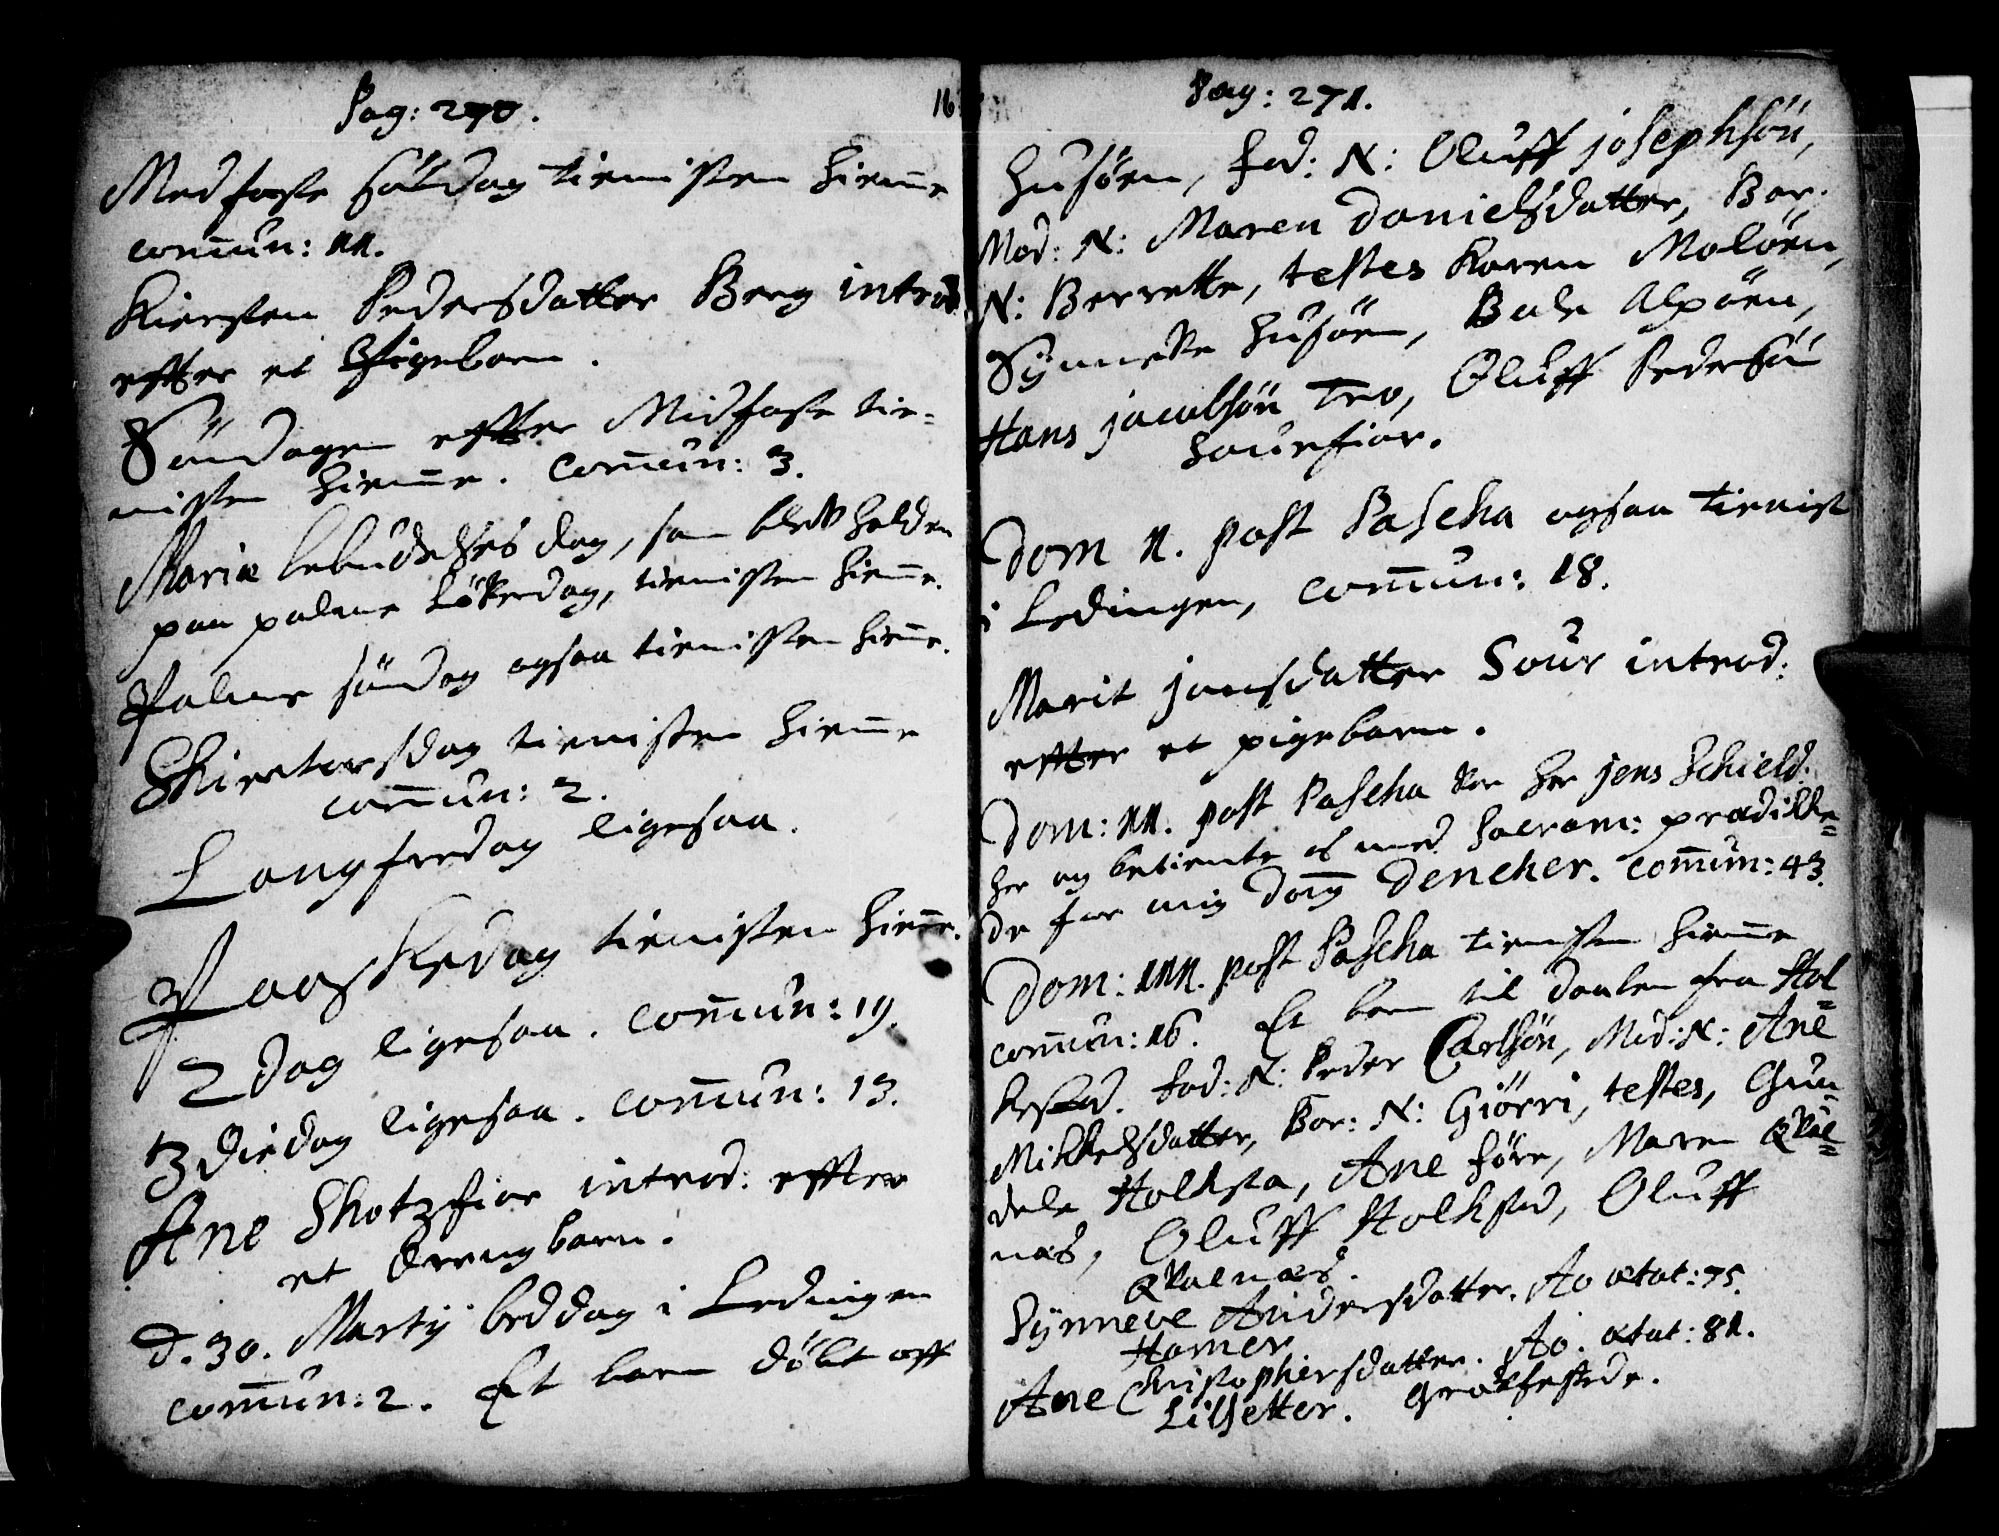 Pag: 270.
16
Medfaste Søndag tienisten hieme
comun: 11.
Kiersten Pedersdatter Berg introd
effter et Pigebarn.
Søndagen effter Midfaste tie=
nisten hieme. Comun: 3.
Mariæ bebudelses dag, som blef holden
paa palme Løверdag, tienisten hieme.
Palme søndag ogsaa tienisten hieme.
Skiertorsdag tienisten hieme
comun: 2.
Langfredag ligesaa.
Paaskedag tienisten hieme.
2 dag ligesaa. Comun: 19.
3die dag ligesaa. Comun: 13.
Ane Skotzfior introd: effter
et Drengbarn.
d. 30. Martij beddag i Lødingen
comun: 2. Et barn døbt aff
Pag: 271.
Husøen, Fad: N: Oluff josephsøn,
Mod: N: Maren Danielsdatter, Bar:
N: Berrette, testes Karen Moløen,
Synneve Husøen, Barbr
Hans jacobsøn Trø, Oluff Pedersøn
Hauefior.
Dom 1. post Pascha ogsaa tienist
i Lødingen, Comun: 18.
Marit jonsdatter Sour introd:
effter et pigebarn.
Dom: 11. post Pascha var her jens Schield:
her og betiente os med Sacram: prædikke=
de for mig Dag Dencker. Comun: 43.
Dom: 111. post Pascha tienisten hieme
comun: 16. Et barn til daaben fra Hol=
kestad. Fad: N: Peder Carlsøn, Mod: N: Ane
Mikkelsdatter, Bar: N: Giørri, testes, Gun=
dele Holksta, Ane Føre, Maren Qval=
næs, Oluff Holkstad, Oluff
Qvalnæs.
Synneve Andersdatter. Ao ætat: 75.
Hamer
Ane Christophersdatter. Ao. ætat: 81.
Lilsetter. Gravfestede.